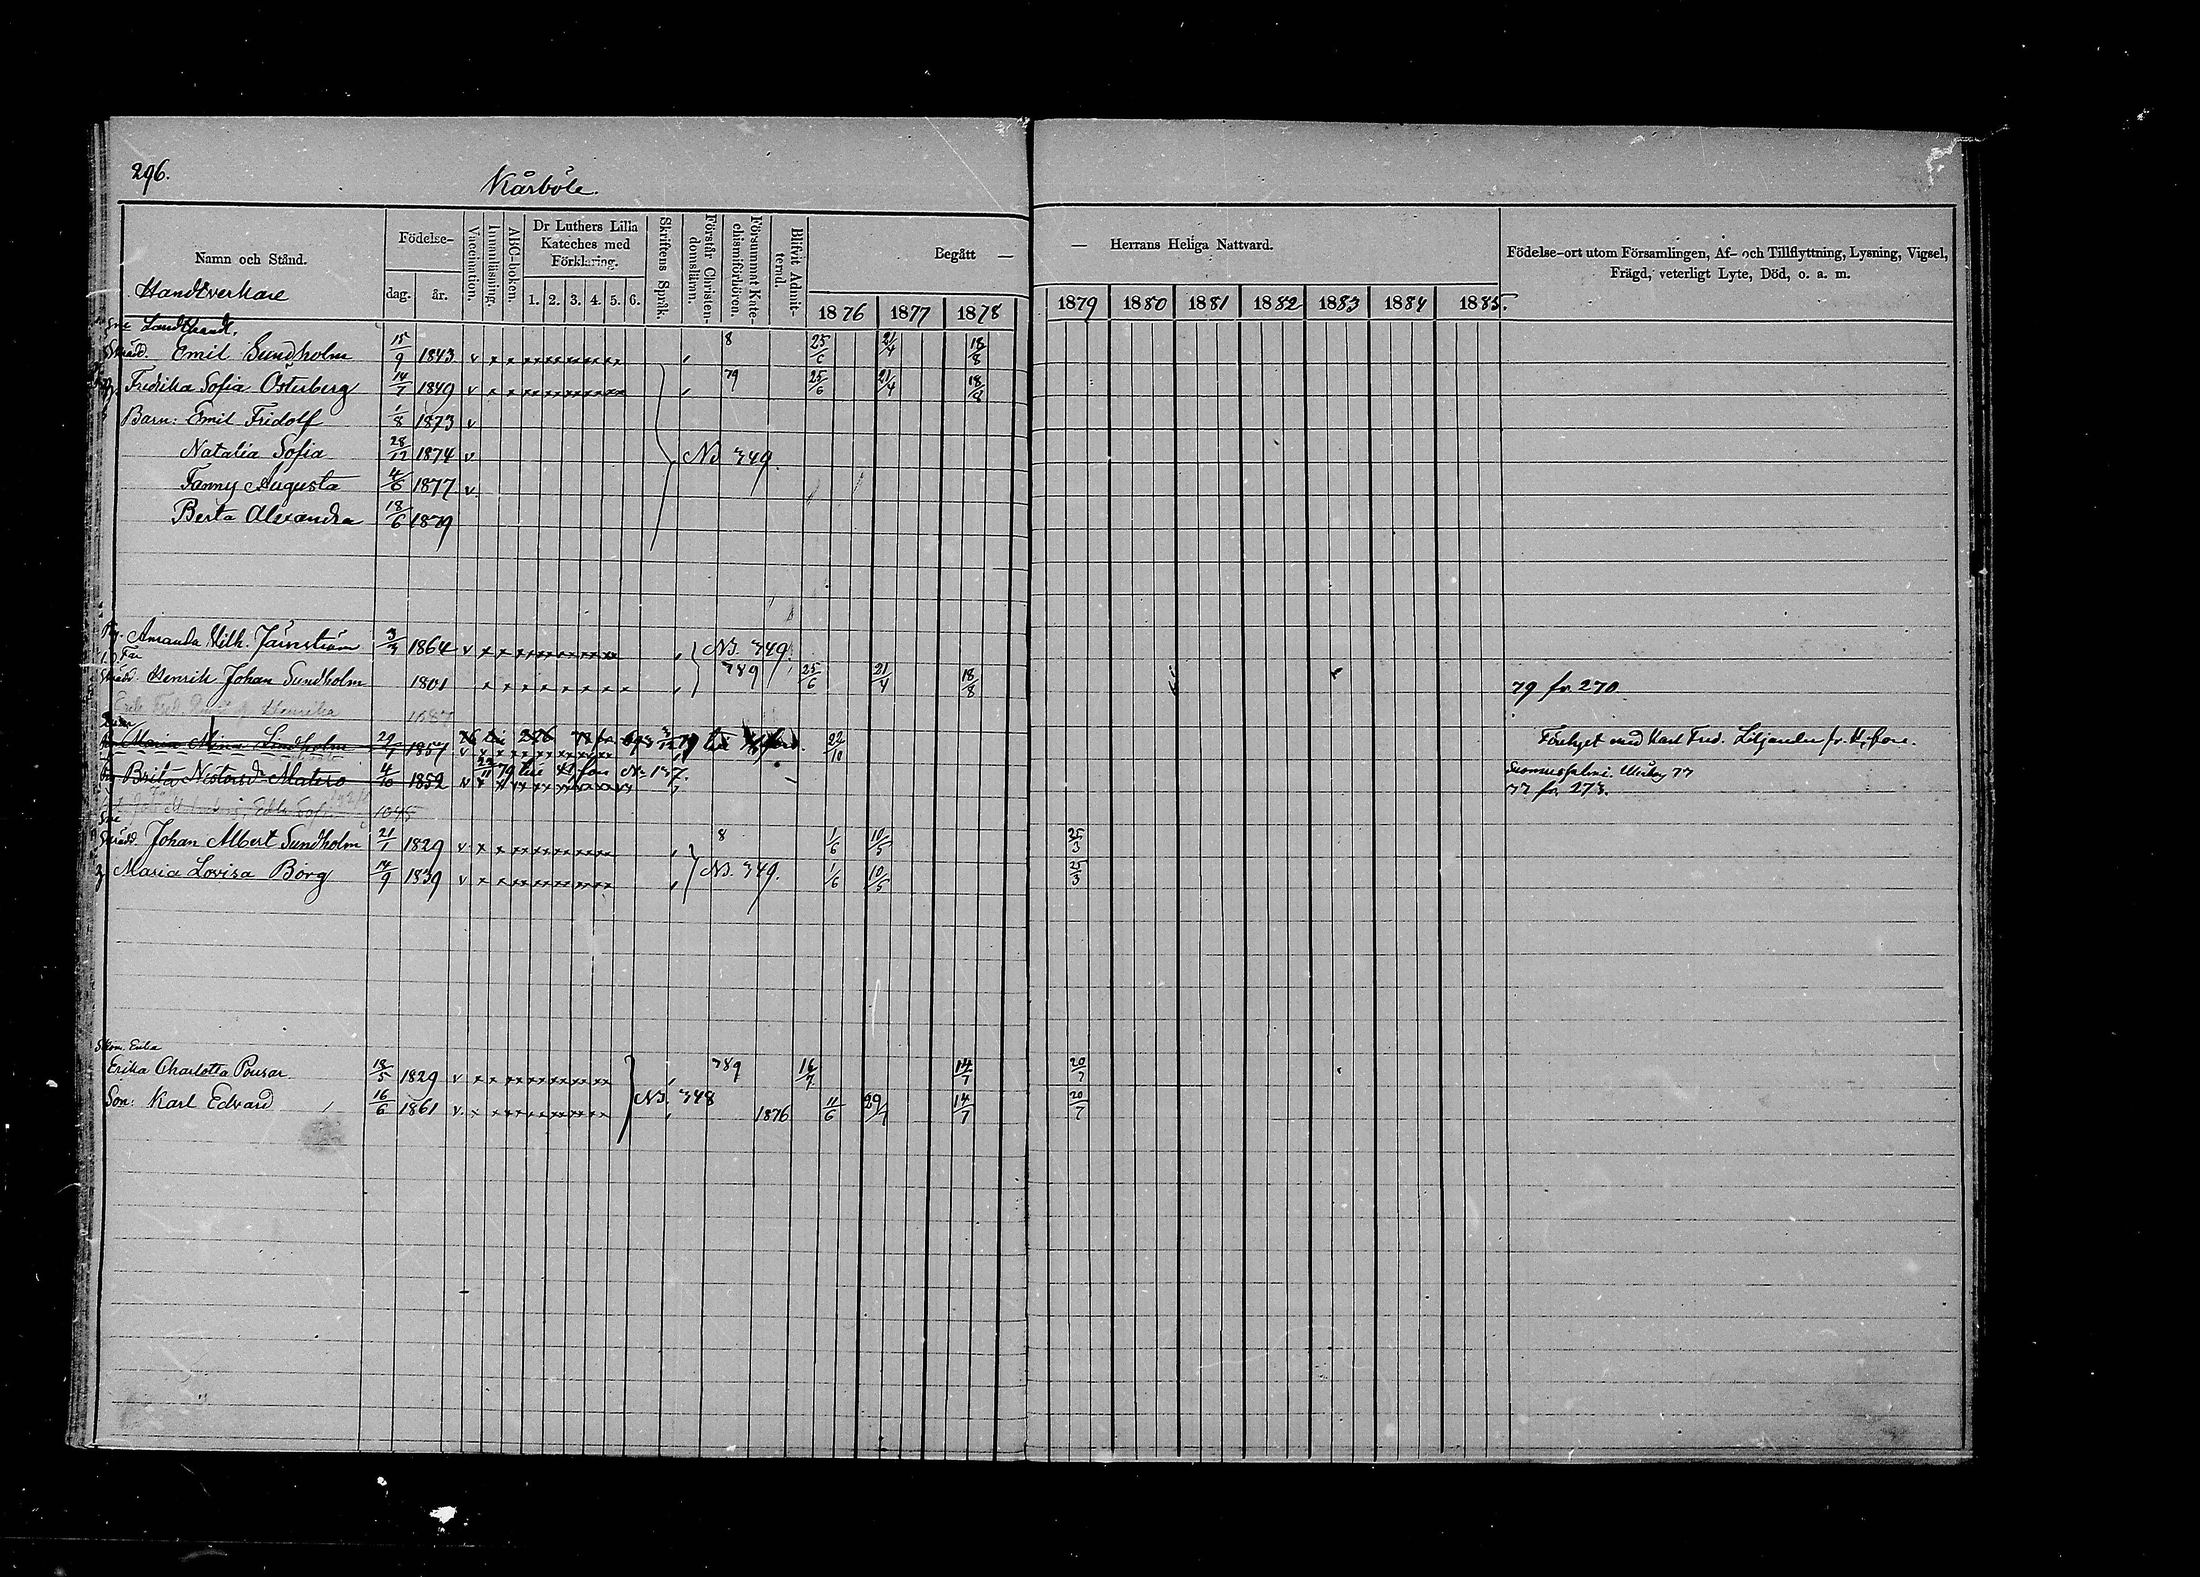 296.
Kårböle.
Namn och Stånd.
Födelse-
dag. år.
Vaccination.
Innanläsning.
ABC-boken.
Dr Luthers Lilla Kateches med Förklaring.
1. 2. 3. 4. 5. 6.
Skriftens Språk.
Förstår Christendomsläran.
Försummat Katechismiförhören.
Blifvit Admitterad.
Begått —
1876 1877 1878
— Herrans Heliga Nattvard.
1879 1880 1881 1882 1883 1884 1885.
Födelse-ort utom Församlingen, Af- och Tillflyttning, Lysning, Vigsel,
Frägd, veterligt Lyte, Död, o. a. m.
Handtverkare
Emil Sundholm 15/9 1843 v x x x x x x x x 8 25/6 21/4 18/8
Fredrika Sofia Österberg 14/7 1849 v x x x x x x x x 79 25/6 21/4 18/8
Barn: Emil Fridolf 1/8 1873 v
Natalia Sofia 28/12 1874 v N3 349.
Fanny Augusta 4/6 1877 v
Berta Alexandra 18/6 1879
Amanda Vilh. Järnström 1864 v x x x x x x x x N3. 349.
Henrik Johan Sundholm 1801 x x x x x x x x 789 25/6 21/4 18/8 79 fr. 270
Maria Mina Lindholm 29/7 1857 v x x x x x x x x 22/10 Förlofvet med Karl Fred. Liljander fr. H:fors.
Brita Nestorsdr Matero 4/10 1852 v x x x x x x x x 79 till H:fors N: 137.
77 fr. 273.
Johan Albert Sundholm 21/1 1829 v x x x x x x x x 8 1/6 10/5 25/3
Maria Lovisa Borg 14/9 1839 v x x x x x x x x N3. 349. 1/6 10/5 25/3
Skom. Enka
Erika Charlotta Pousar 18/5 1829 v x x x x x x x x 789 16/7 14/7 20/7
Son: Karl Edvard 16/6 1861 v x x x x x x x x N3. 348 1876 11/6 29/7 14/7 20/7